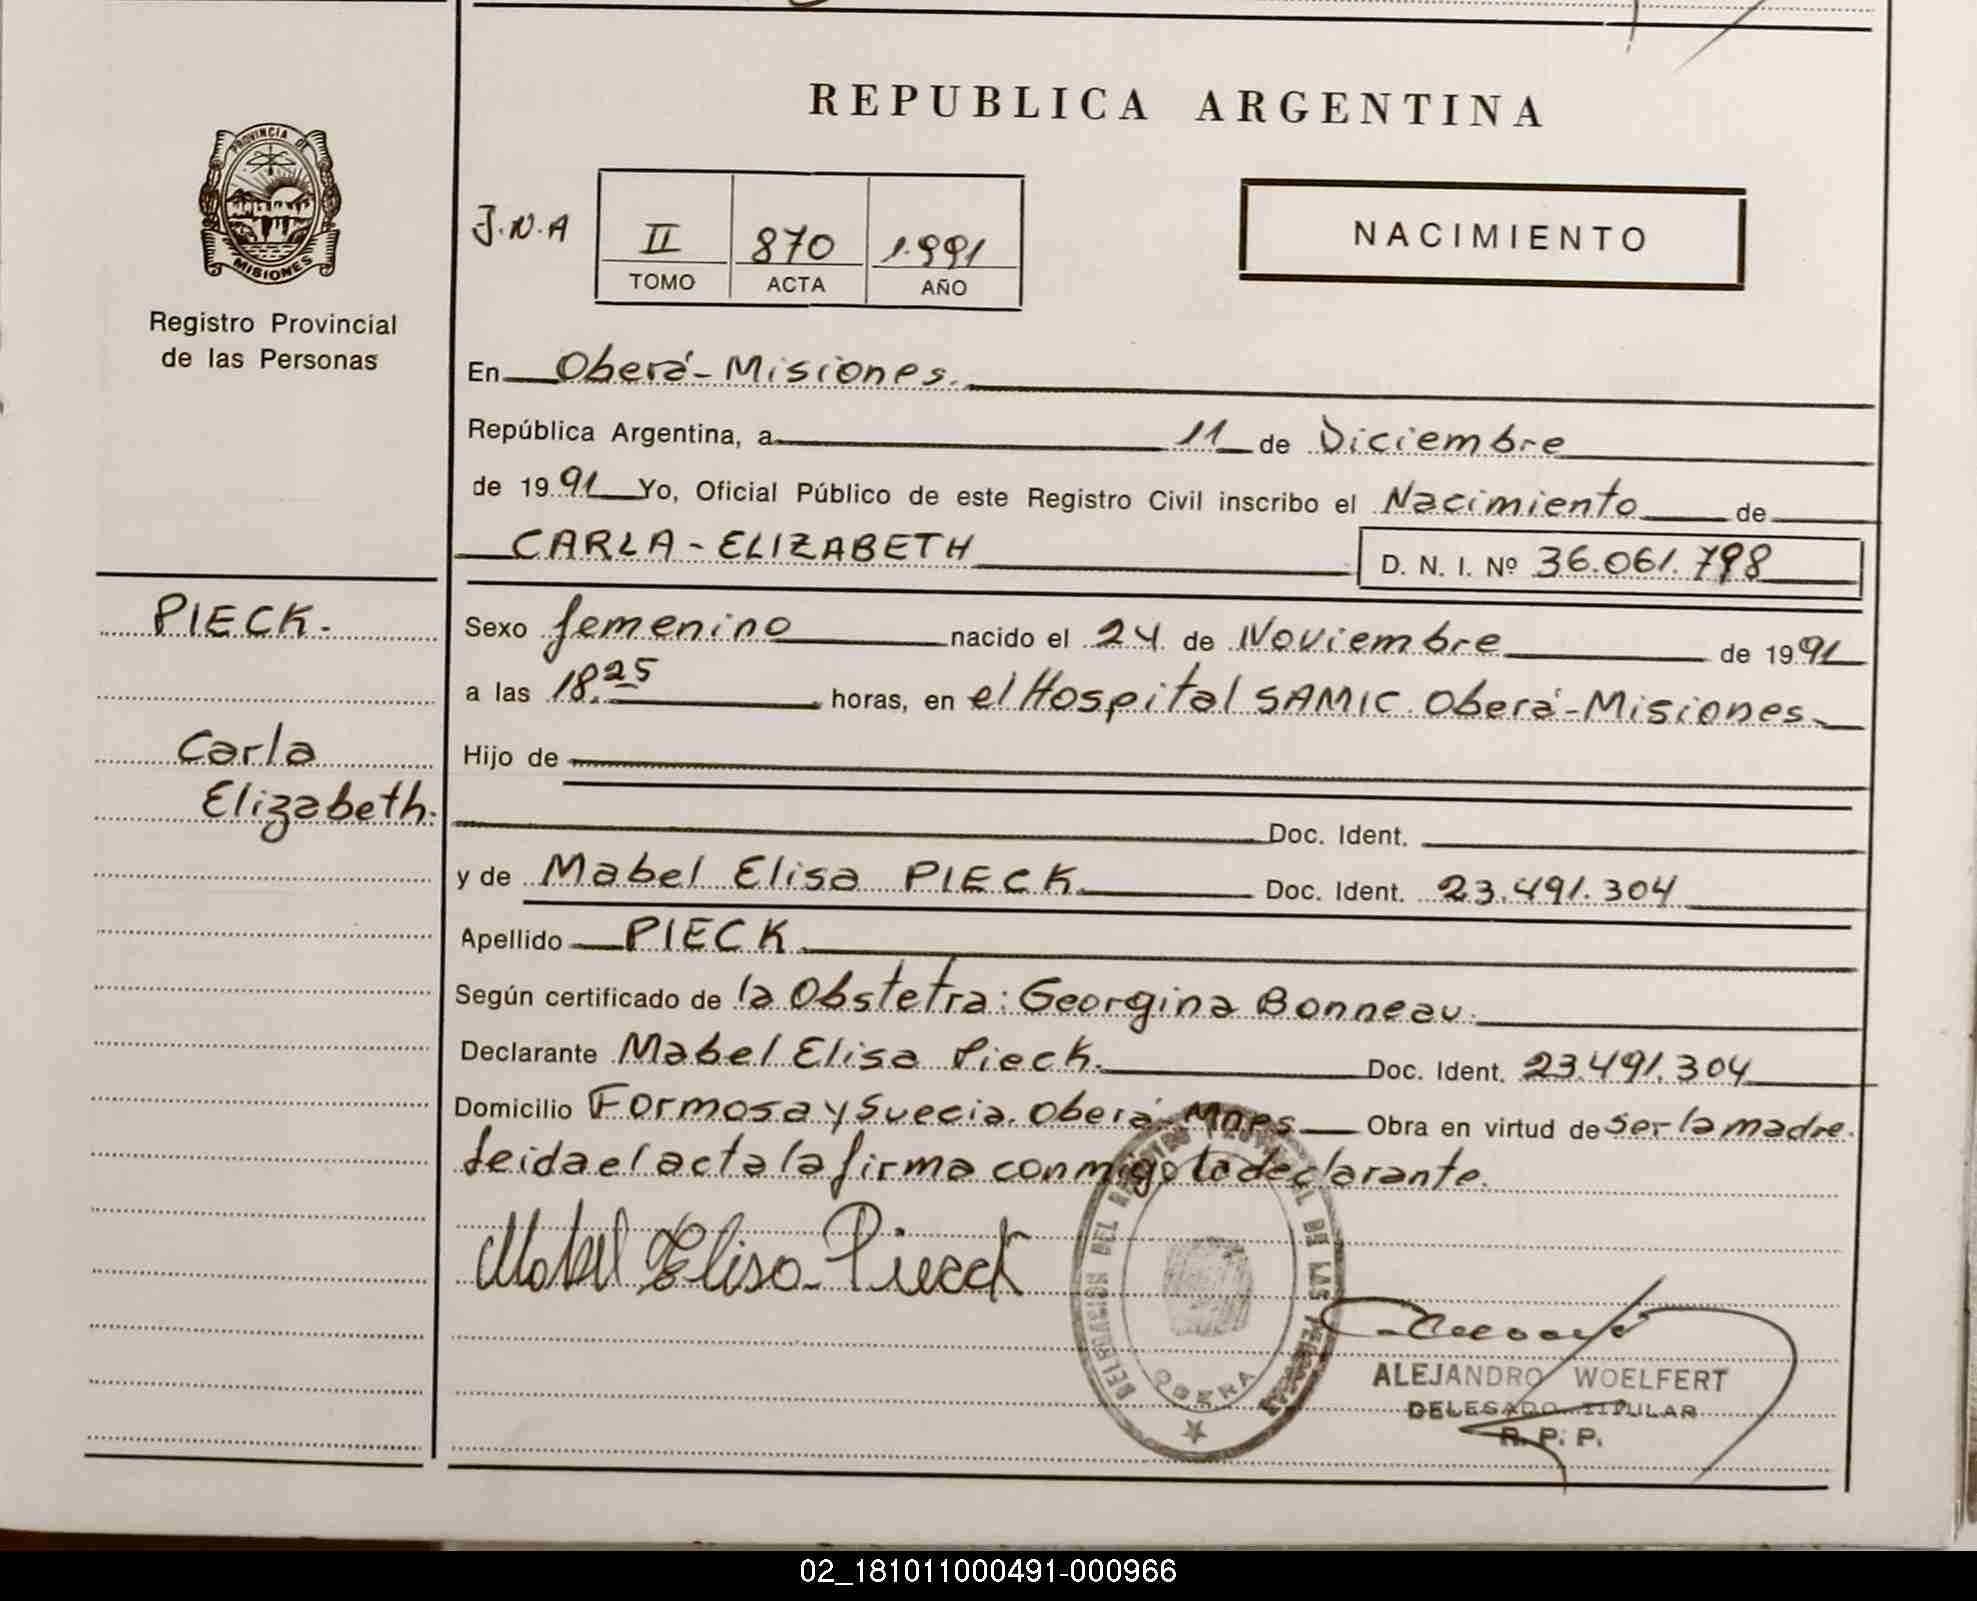 REPUBLICA ARGENTINA
PROVINCIA DE
MISIONES
Registro Provincial
de las Personas
J.N.A
II 870 1.991
TOMO ACTA AÑO
NACIMIENTO
En Oberá-Misiones.
República Argentina, a 11 de Diciembre
de 1991 Yo, Oficial Público de este Registro Civil inscribo el Nacimiento de
CARLA-ELIZABETH D. N. I. Nº 36.061.798
PIECK.
Carla
Elizabeth.
Sexo femenino nacido el 24 de Noviembre de 1991
a las 18.25 horas, en el Hospital SAMIC Oberá-Misiones.
Hijo de
Doc. Ident.
y de Mabel Elisa PIECK Doc. Ident. 23.491.304
Apellido PIECK
Según certificado de la Obstetra: Georgina Bonneau.
Declarante Mabel Elisa Pieck. Doc. Ident. 23.491.304
Domicilio Formosa y Suecia. Oberá-Mnes Obra en virtud de ser la madre.
Leida el acta la firma conmigo la declarante.
Mabel Elisa Pieck
DELEGACION DEL REGISTRO PROVINCIAL DE LAS PERSONAS
OBERA
ALEJANDRO WOELFERT
DELEGADO TITULAR
R. P. P.
02_181011000491-000966